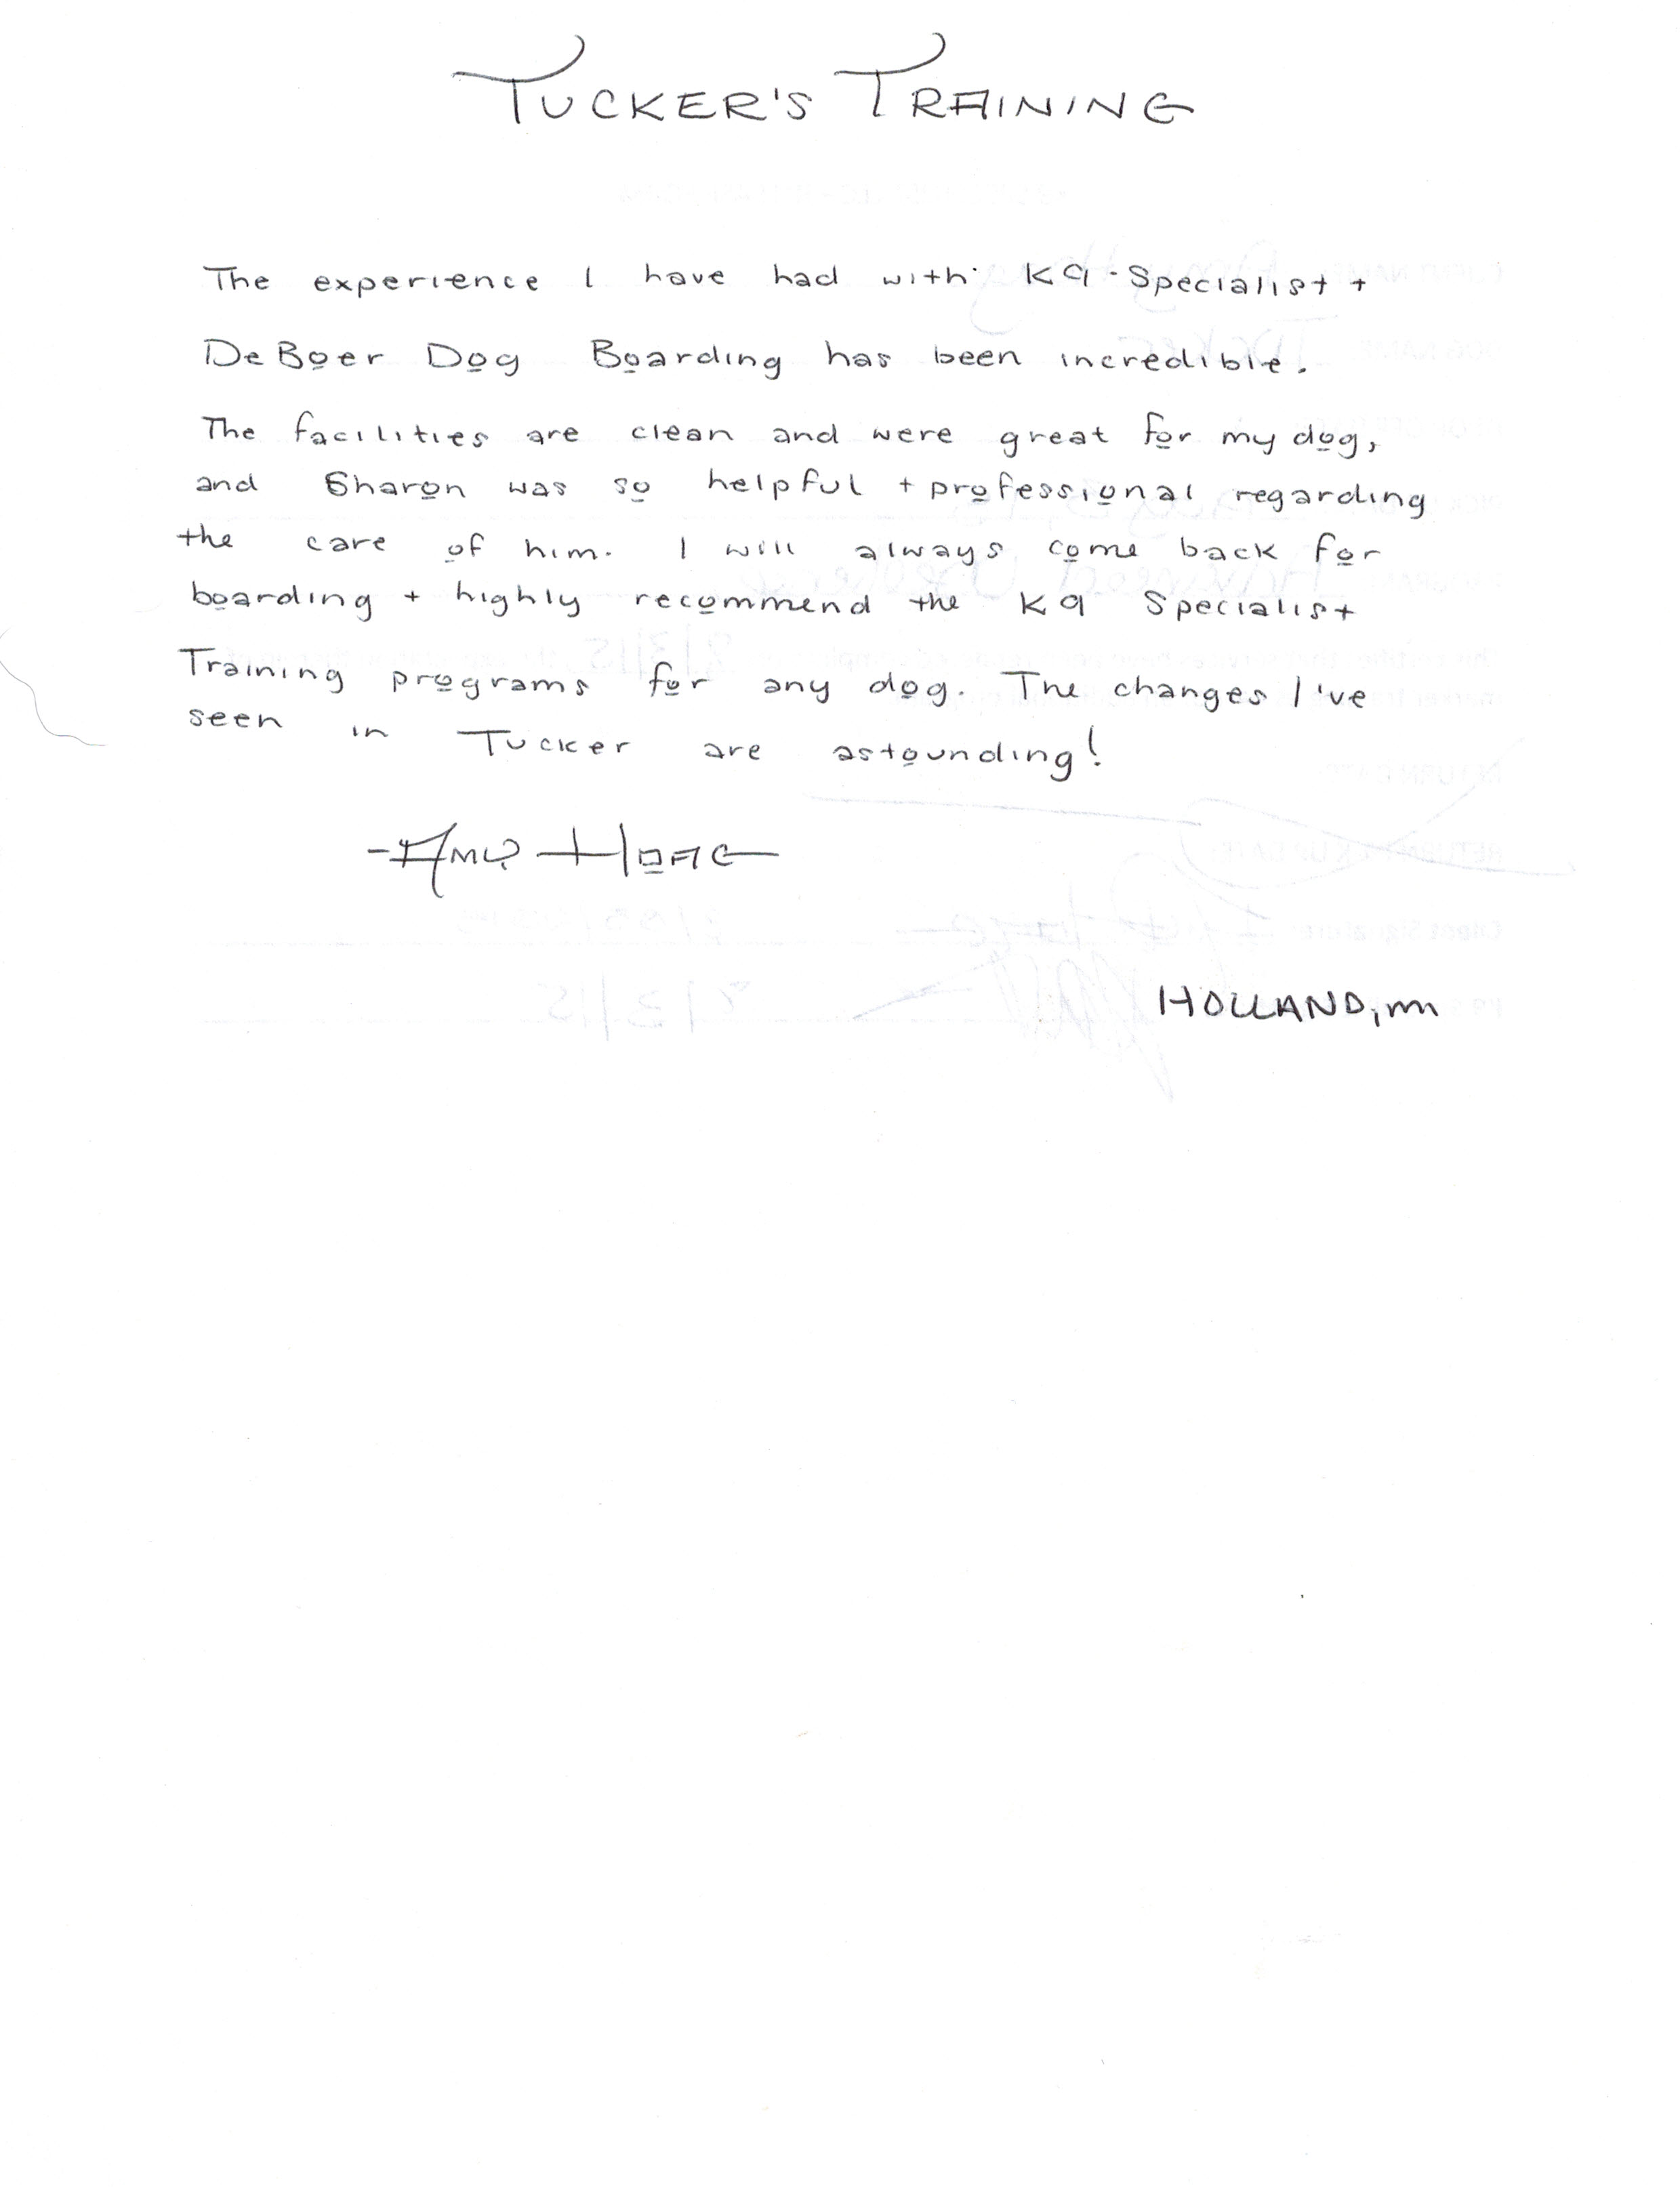 TUCKER'S TRAINING
The experience I have had with K9-Specialist +
DeBoer Dog Boarding has been incredible.
The facilities are clean and were great for my dog,
and Sharon was so helpful + professional regarding
the care of him. I will always come back for
boarding + highly recommend the K9 Specialist
Training programs for any dog. The changes I've
seen in Tucker are astounding!
-AMY HOAG
HOLLAND, MI